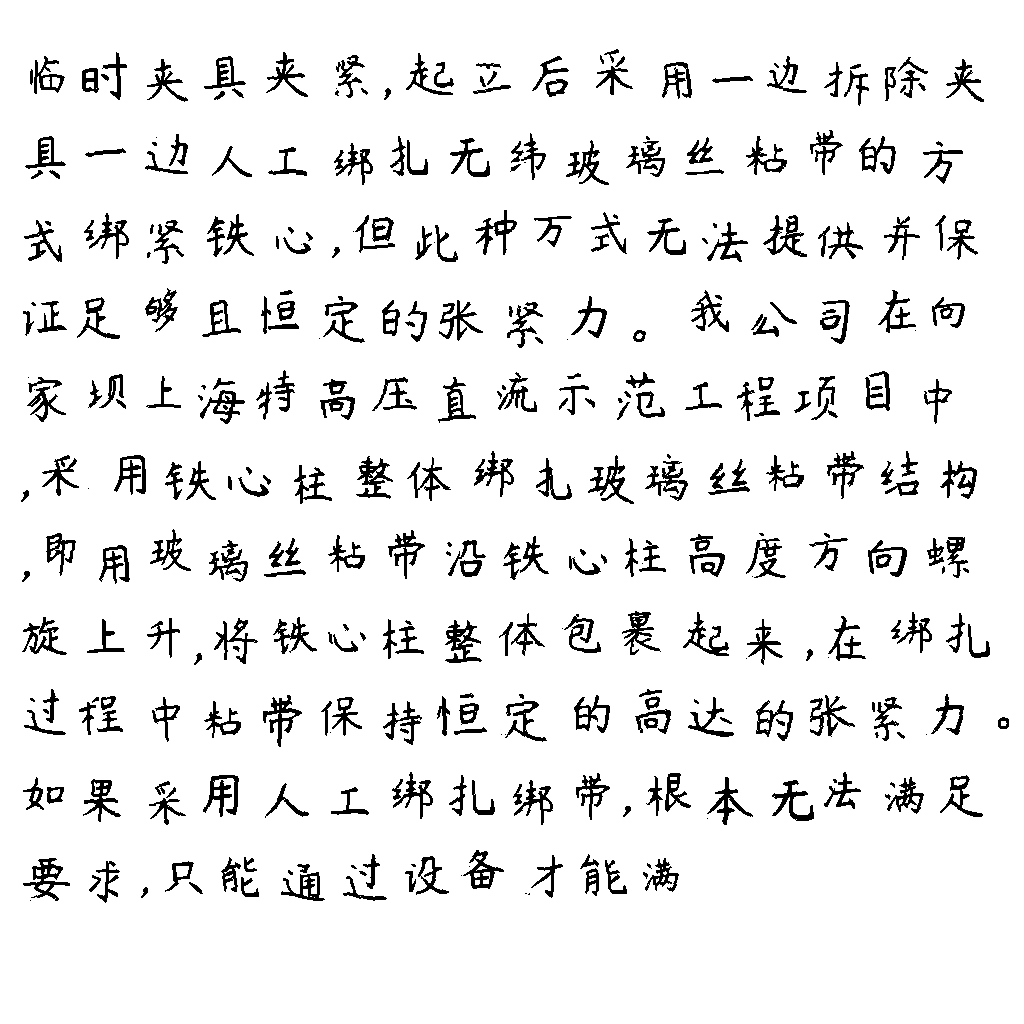 临时夹具夹紧,起立后采用一边拆除夹
具一边人工绑扎无纬玻璃丝粘带的方
式绑紧铁心,但此种万式无法提供并保
证足够且恒定的张紧力。我公司在向
家坝上海特高压直流示范工程项目中
,采用铁心柱整体绑扎玻璃丝粘带结构
,即用玻璃丝粘带沿铁心柱高度方向螺
旋上升,将铁心柱整体包裹起来,在绑扎
过程中粘带保持恒定的高达的张紧力。
如果采用人工绑扎绑带,根本无法满足
要求,只能通过设备才能满